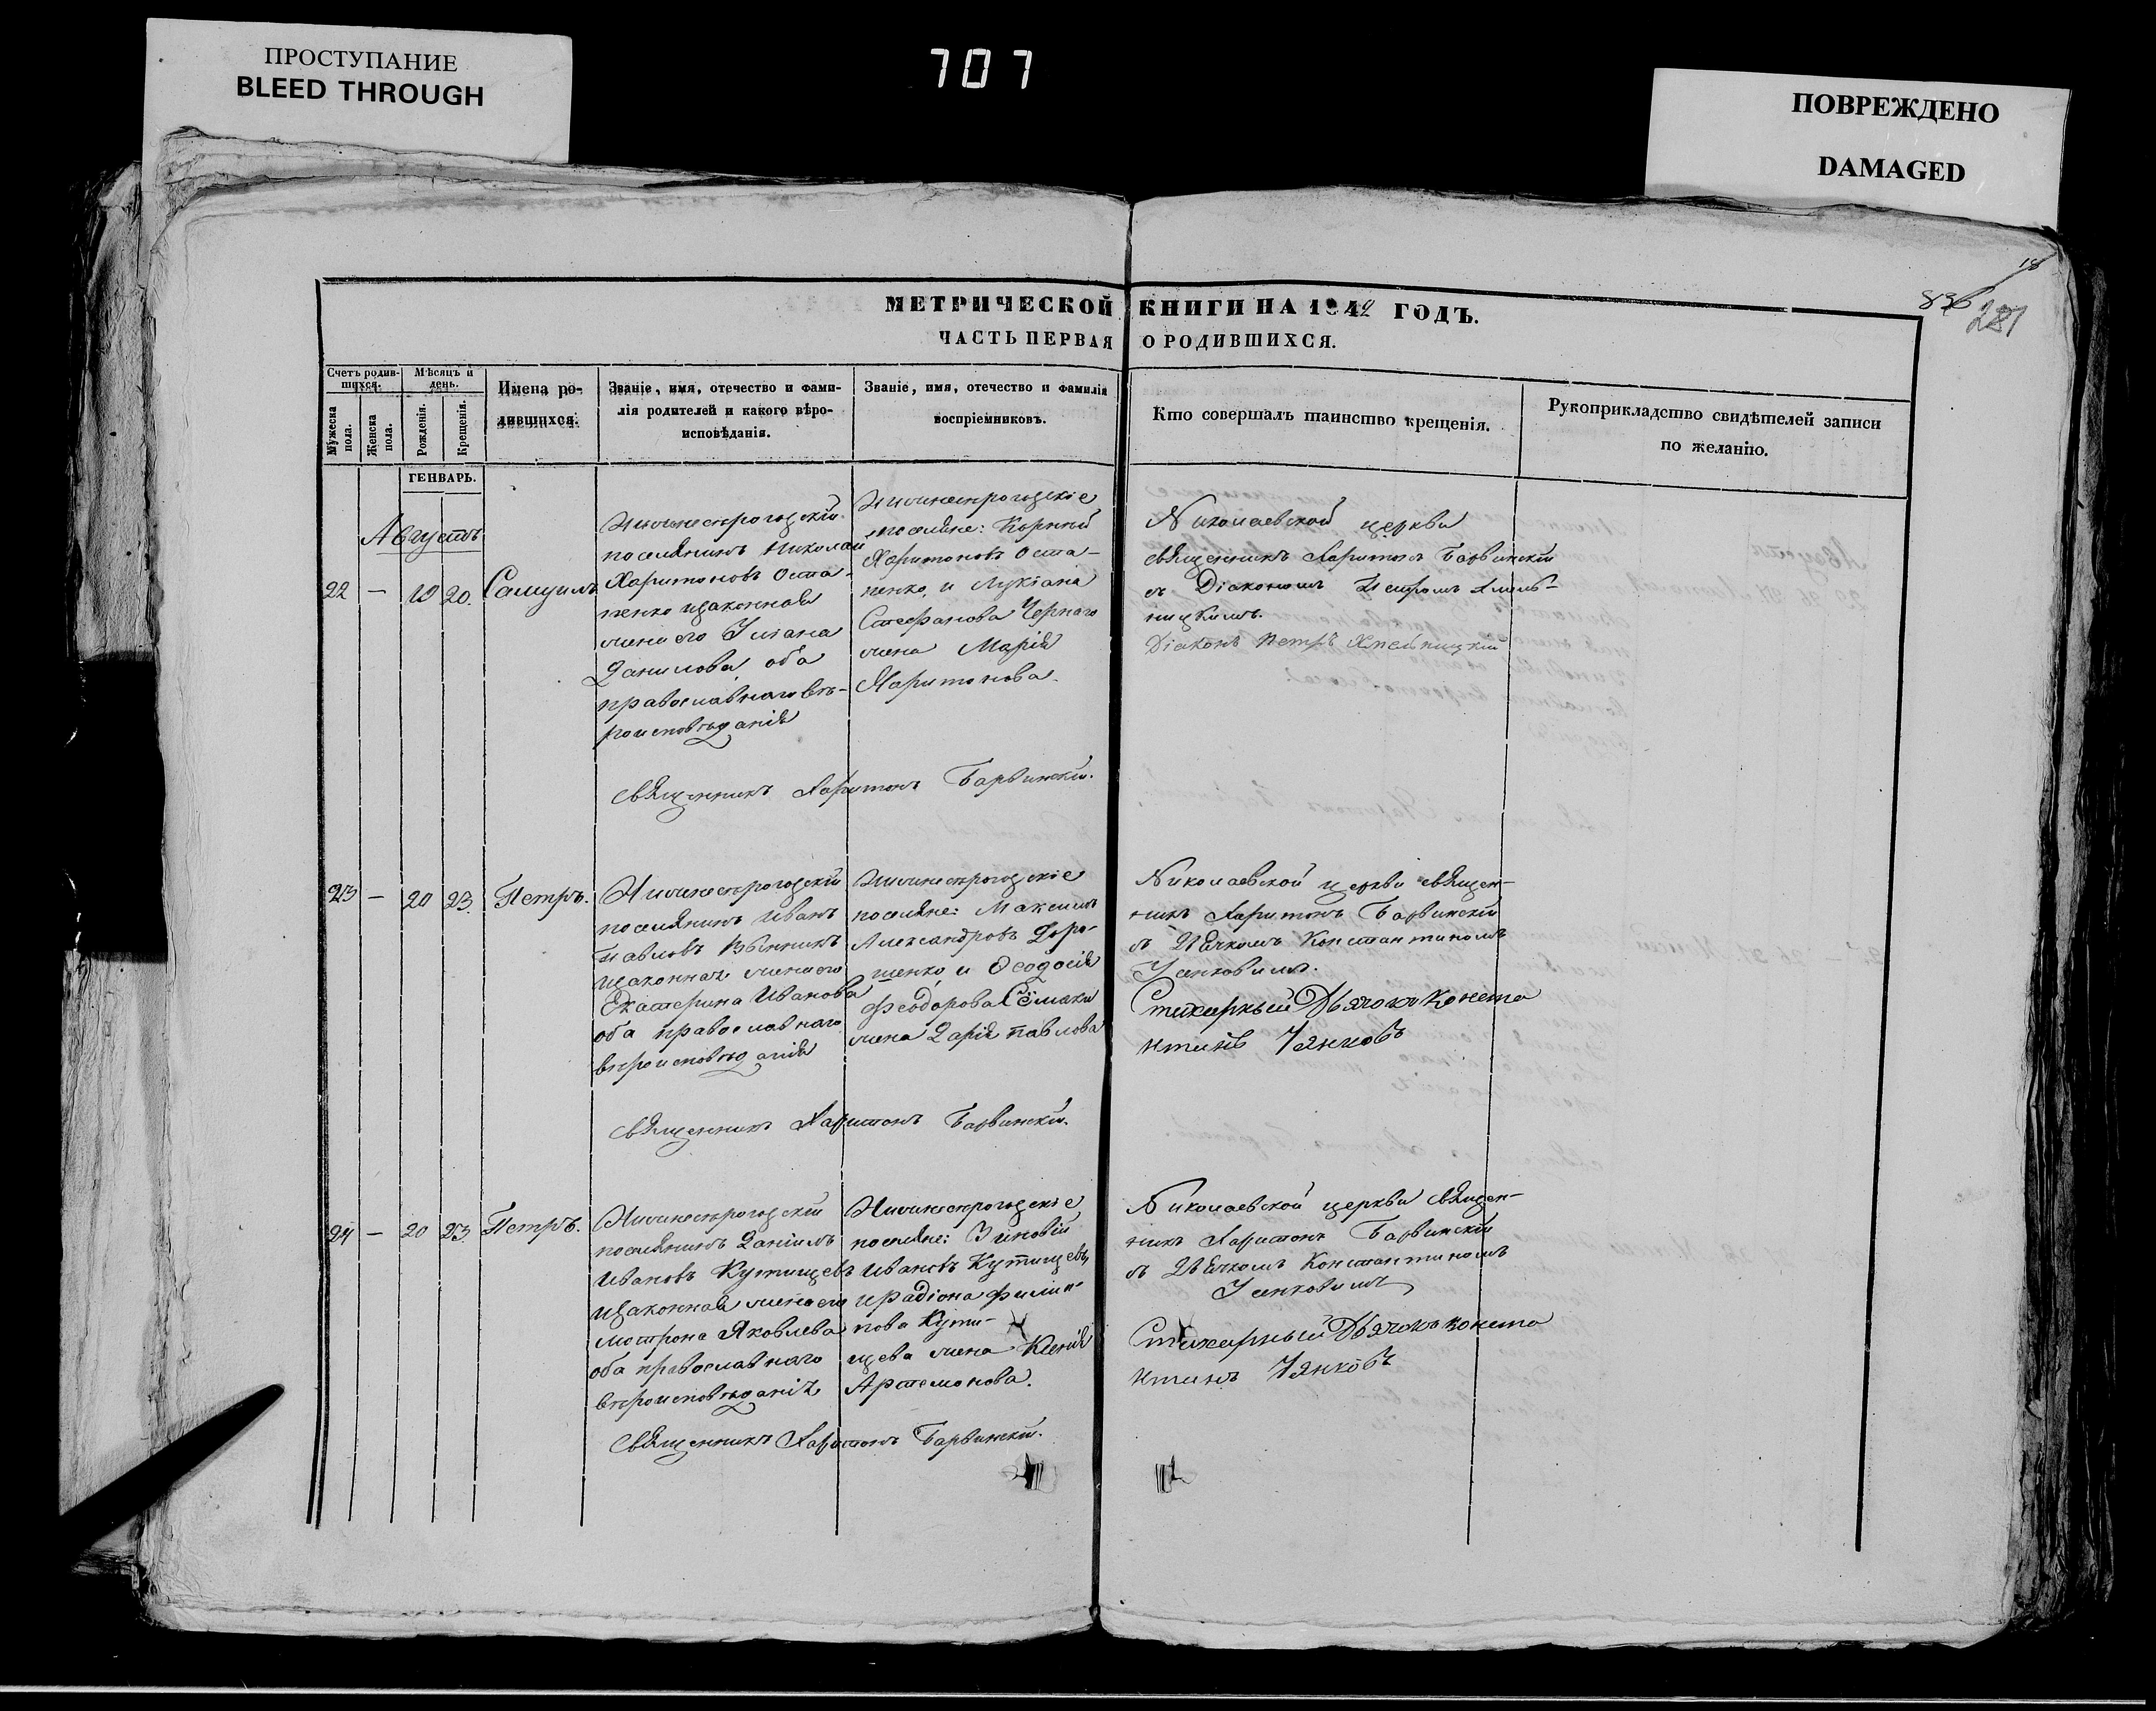 ПРОСТУПАНИЕ
BLEED THROUGH
707
ПОВРЕЖДЕНО
DAMAGED
18
836
281
МЕТРИЧЕСКОЙ КНИГИ НА 1842 ГОДЪ.
ЧАСТЬ ПЕРВАЯ О РОДИВШИХСЯ.
Счетъ родив-
шихся.
Мѣсяцъ и
день.
Мужеска
пола.
Женска
пола.
Рожденія.
Крещенія.
Имена ро-
дившихся.
Званіе, имя, отечество и фами-
лія родителей и какого вѣро-
исповѣданія.
Званіе, имя, отечество и фамилія
воспріемниковъ.
Кто совершалъ таинство крещенія.
Рукоприкладство свидѣтелей записи
по желанію.
ГЕНВАРЬ.
Августъ
22 — 19 20. Самуилъ
Нижнесѣрогозскій
поселянинъ Николай
Харитоновъ Оста-
пенко изаконная
жена его Уліана
Данилова, оба
православнаго вѣ-
роисповѣданія
Нижнесѣрогозскіе
поселяне: Корнилій
Харитоновъ Оста-
пенко, и Лукіана
Стефанова Чернаго
жена Марія
Харитонова.
Николаевской церкви
священникъ Харитонъ Барвинскій
съ Діакономъ Петромъ Хмель-
ницкимъ.
Діаконъ Петръ Хмельницкій
священникъ Харитонъ Барвинскій.
23 — 20 23. Петръ.
Нижнесѣрогозскій
поселянинъ Иванъ
Павловъ
изаконная жена его
Екатерина Иванова
оба православнаго
вѣроисповѣданія
Нижнесѣрогозскіе
поселяне: Максимъ
Александровъ Доро-
шенко, и Ѳеодосія
Феодорова Сёмаки
жена Дарія Павлова
Николаевской церкви священ-
никъ Харитонъ Барвинскій
съ Дьячкомъ Константиномъ
Уянковимъ.
Стихарный Дьячокъ Конста
нтинъ Уянковъ
священникъ Харитонъ Барвинскій.
24 — 20 23. Петръ.
Нижнесѣрогозскій
поселянинъ Даніилъ
Ивановъ Кутищевъ
изаконная жена его
Мотрона Яковлева
оба православнаго
вѣроисповѣданія
Нижнесѣрогозскіе
поселяне: Зиновій
Ивановъ Кутищевъ,
ирадіона Филип-
пова Кути-
щева жена Ксенія
Артемонова.
Николаевской церкви священ-
никъ Харитонъ Барвинскій
съ Дьячкомъ Константиномъ
Уянковимъ
Стихарный Дьячокъ Конста
нтинъ Уянковъ
Священникъ Харитонъ Барвинскій.